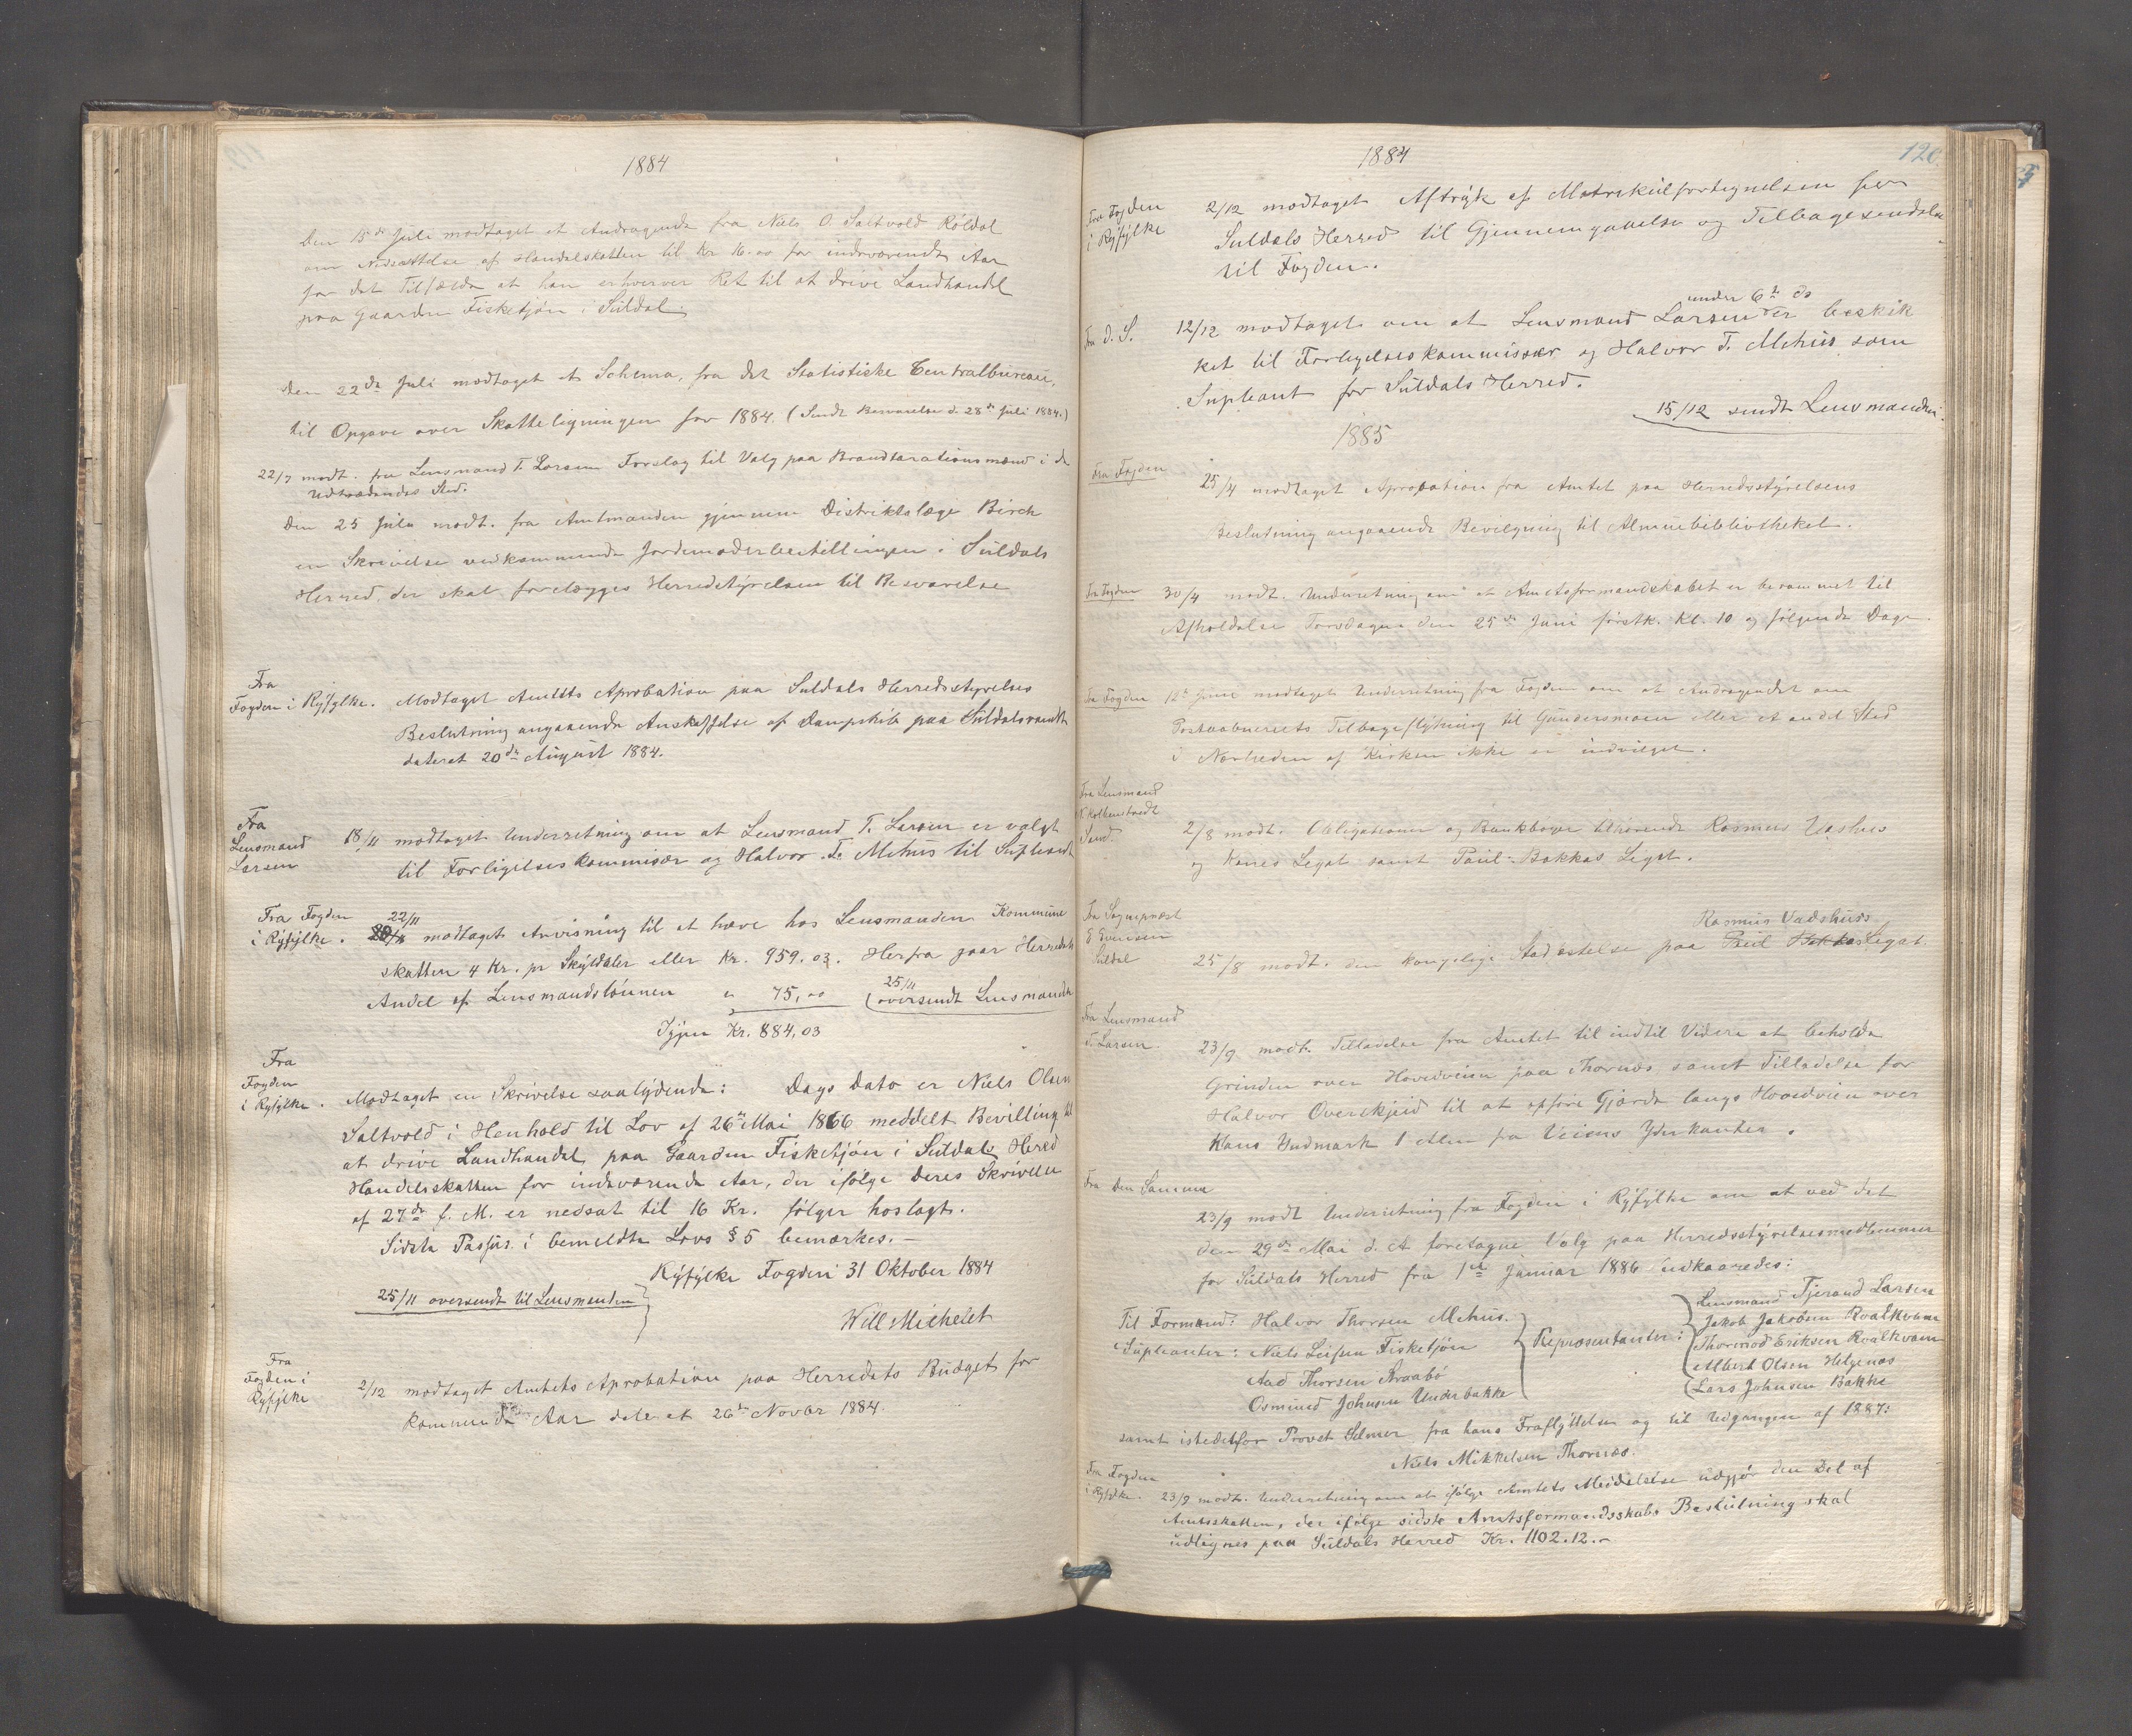 1884
Den 15de Juli modtaget et Andragende fra Niels O. Saltvold Röldal
om Nedsættelse af Handelskatten til Kr 16.00 for indeværende Aar
for det Tilfælde at han erhverver Ret til at drive Landhandel
paa Gaarden Fisketjön i Suldal.
Den 22de Juli modtaget et Schema, fra det Statistiske Centralbureau,
til Opgave over Skatteligningen for 1884. (Sendt Besvarelse d. 28de Juli 1884.)
22/7 modt. fra Lensmand T. Larsen Forslag til Valg paa Brandtaxationsmænd i de
Udtrædendes Sted.
Den 25 Juli modt. fra Amtmanden gjennem Distriktslæge Birch
en Skrivelse vedkommende Jordemoderbestillingen i Suldals
Herred, der skal forelægges Herredstyrelsen til Besvarelse
Fra
Fogden i Ryfylke. Modtaget Amtets Aprobation paa Suldals Herredsstyrelses
Beslutning angaaende Anskaffelse af Dampskib paa Suldalsvandet
dateret 20de August 1884.
Fra
Lensmand
Larsen
18/11 modtaget Underretning om at Lensmand T. Larsen er valgt
til Forligelseskommisær og Halvor T. Mehus til Supleant
Fra Fogden
i Ryfylke.
22/11
modtaget Anvisning til at hæve hos Lensmanden Kommune
skatten 4 Kr. pr Skyldaler eller Kr. 959.03. Herfra gaar Herredets
Andel af Lensmandslönnen " 75,00 (25/11 oversendt Lensmanden
Igjen Kr. 884,03
Fra
Fogden
i Ryfylke.
Modtaget en Skrivelse saalydende: Dags Dato er Niels Olsen
Saltvold i Henhold til Lov af 26de Mai 1866 meddelt Bevilling til
at drive Landhandel paa Gaarden Fisketjön i Suldals Hered
Handelsskatten for indeværende Aar, der ifölge Deres Skrivelse
af 27de f. M. er nedsat til 16 Kr. fölger hoslagt.
Sidste Passus i bemeldte Lovs § 5 bemærkes. –
Ryfylke Fogderi 31 Oktober 1884
25/11 oversendt til Lensmanden
Will Michelet
Fra
Fogden i
Ryfylke
2/12 modtaget Amtets Aprobation paa Herredets Budget for
kommende Aar dateret 26de Novbr 1884.
1884
120
Fra Fogden
i Ryfylke
2/12 modtaget Aftryk af Matrikulfortegnelsen for
Suldals Herred til Gjennemgaaelse og Tilbagesendelse
til Fogden.
Fra D. S.
under 6te ds
12/12 modtaget om at Lensmand Larsen er beskik
ket til Forligelseskommissær og Halvor T. Mehus som
Supleant for Suldals Herred.
15/12 sendt Lensmanden.
1885
Fra Fogden
25/4 modtaget Aprobation fra Amtet paa Herredsstyrelsens
Beslutning angaaende Bevilgning til Almuebibliotheket.
Fra Fogden
30/4 modt. Underretning om at Amtsformandskabet er berammet til
Afholdelse Torsdagen den 25de Juni förstk. Kl. 10 og fölgende Dage.
Fra Fogden
12te Juni modtaget Underretning fra Fogden om at Andragendet om
Postaabneriets Tilbageflytning til Gundersmoen eller et andet Sted
i Nærheden af Kirken ikke er indvilget.
Fra Lensmand
Sand.
2/8 modt. Obligationer og Bankbøger tilhørende Rasmus Vashus
og Kones Legat samt Paul-Bakkas Legat.
Fra Sogneprest
Suldal
Rasmus Vadshuss
25/8 modt. den kongelige Stadfæstelse paa Paul Bakkas Legat.
Fra Lensmand
T. Larsen.
23/9 modt. Tilladelse fra Amtet til indtil Videre at beholde
Grinden over Hovedveien paa Thornæs samt Tilladelse for
Halvor Overskjeid til at opföre Gjærde langs Hovedveien over
Hans Indmark 1 Alen fra Veiens Yderkanter.
Fra Den Samme
23/9 modt Underretning fra Fogden i Ryfylke om at ved det
den 29de Mai d. A. foretagne Valg paa Herredsstyrelsesmedlemmer
for Suldals Herred fra 1ste Januar 1886 udkaaredes:
Til Formænd: Halvor Thorsen Mehus.
Supleanter: Niels Leifsen Fisketjön
Aad Thorsen Straabö
Osmund Johnsen Underbakke
Repræsentanter:
Lensmand Tjerand Larsen
Jakob Jakobsen Roalkvam
Thormod Eriksen Roalkvam
Albert Olsen Helgenæs
Lars Johnsen Bakke
samt istedetfor Provst Selmer fra hans Fraflyttelse og til Udgangen af 1887:
Niels Mikkelsen Thornæs.
Fra Fogden
i Ryfylke.
23/9 modt. Underretning om at ifölge Amtets Meddelelse udgjör den Del af
Amtsskatten, der ifölge sidste Amtsformandsskabs Beslutning skal
udlignes paa Suldals Herred Kr. 1102.12.–